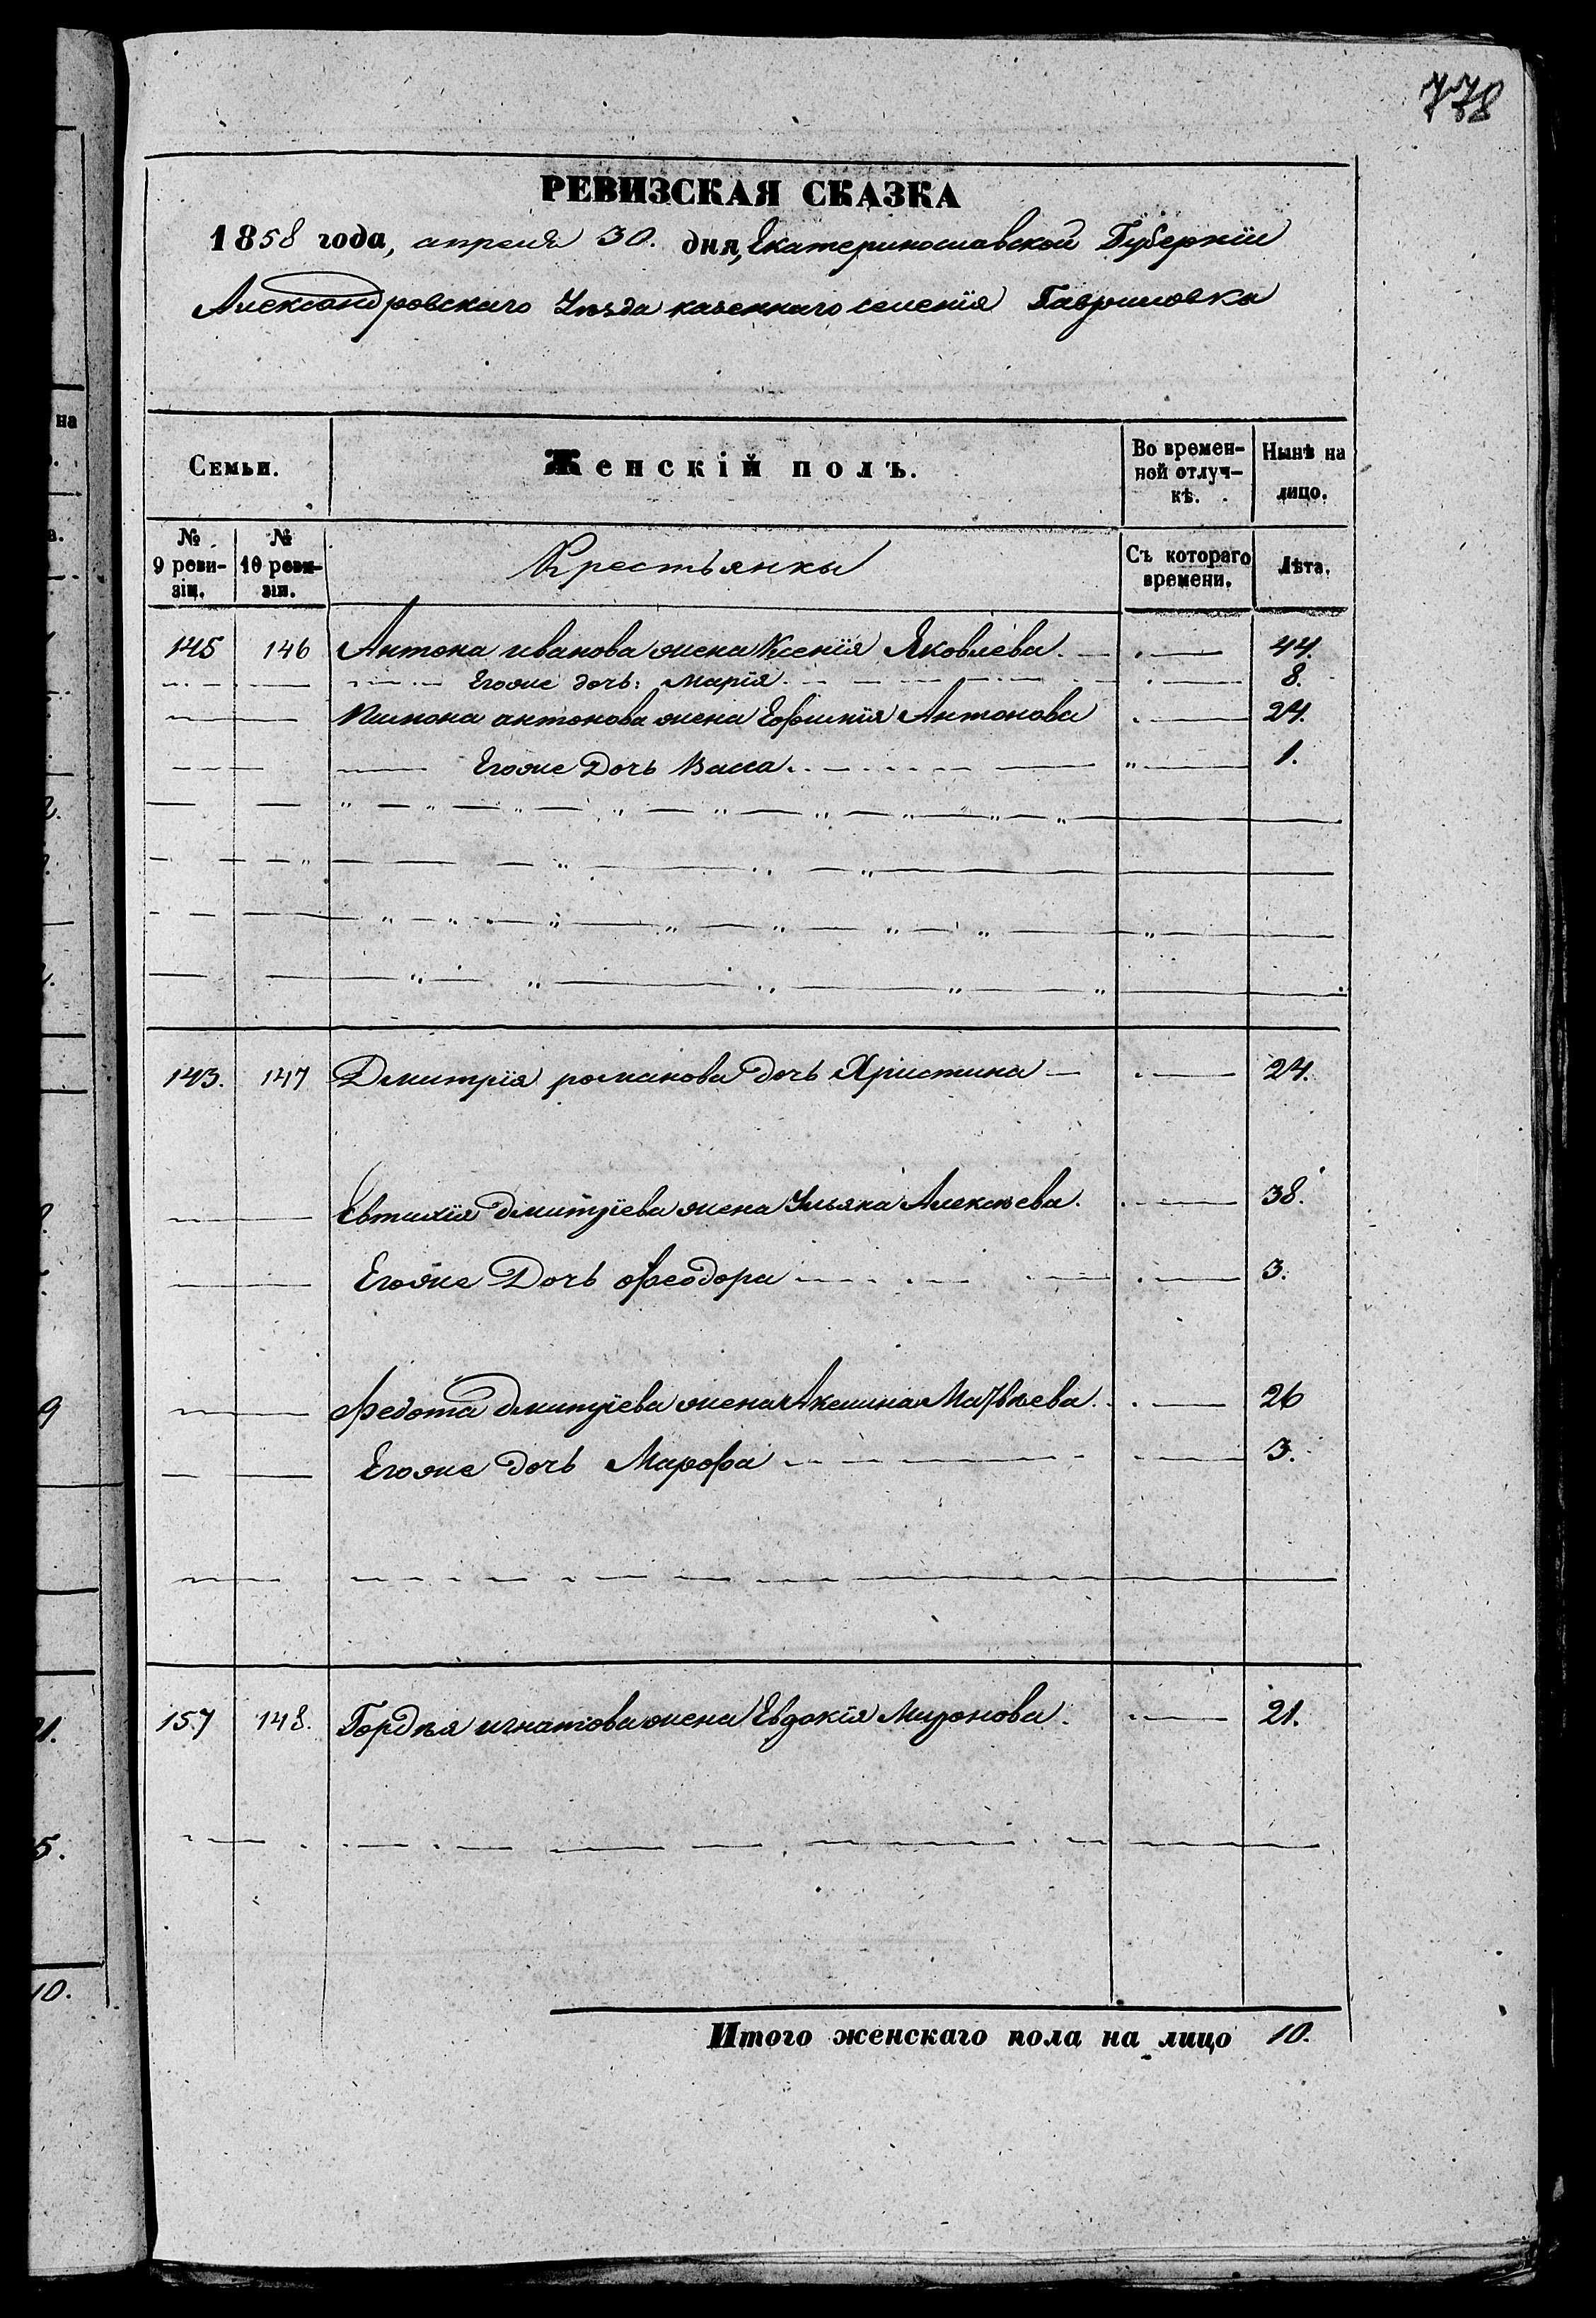 778
РЕВИЗСКАЯ СКАЗКА
1858 года, апреля 30. дня, Екатеринославской Губернїи
Александровскаго Уѣзда казеннаго селенїя Гавриловка
Семьи. Женскій полъ. Во времен- Нынѣ на
ной отлуч-
кѣ. лицо.
№ № Крестьянки Съ котораго Лѣта.
9 реви- 10 реви- времени.
зіи. зіи.
145 146 Антона иванова жена Ксенїя Яковлева. 44.
Егоже дочь: Марїя. 8.
антонова жена Ефимїя Антонова 24.
Егоже Дочь Васса. 1.
143. 147 Дмитрїя романова дочь Христина 24.
Евтихїя дмитрїева жена Ульяна Алексѣева. 38.
Егоже Дочь Феодора 3.
Федота дмитрїева жена Акелина Матвѣева. 26
Егоже дочь Марфа 3.
157 148. Гордѣя игнатова жена Евдокїя Миронова. 21.
Итого женскаго пола на лицо 10.
на
9
21.
5.
10.